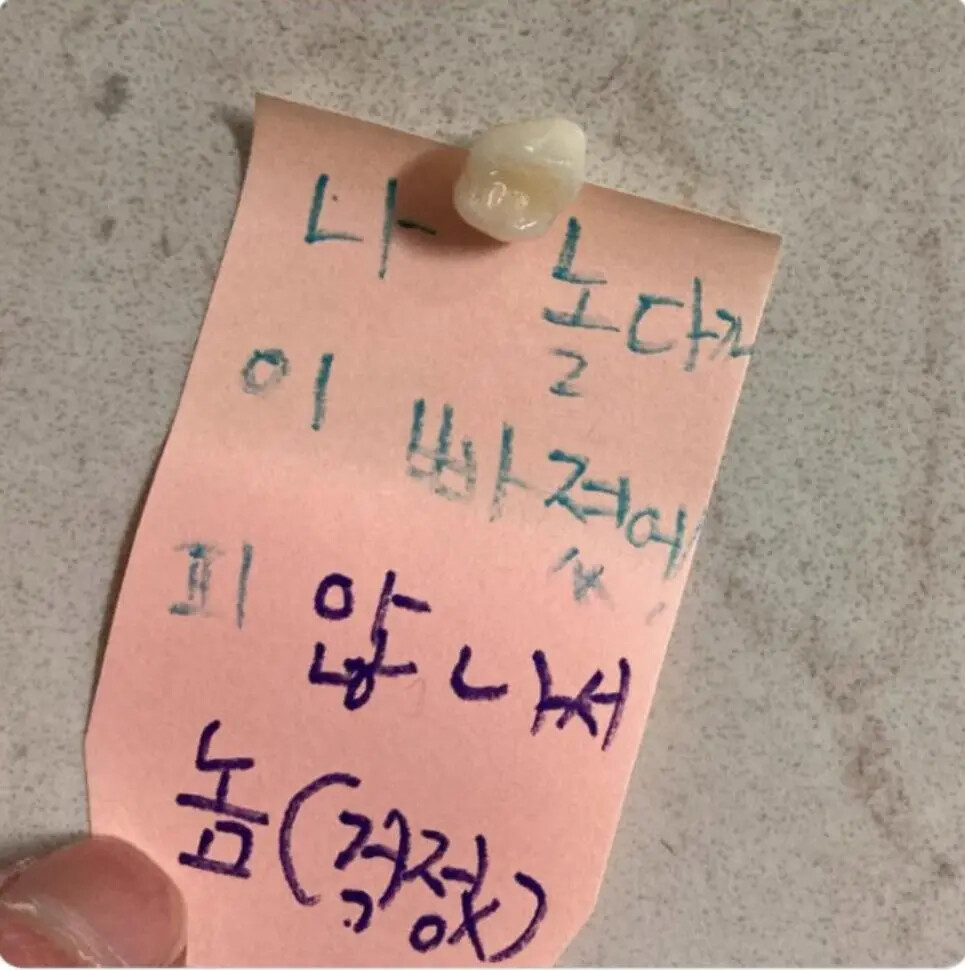 나 놀다가
이 빠졌어
피 않 나서
놈 (걱정X)